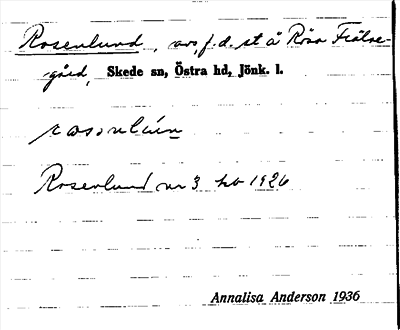 Rosenlund, avs, f.d. st å Rösa Frälse-
gård, Skede sn, Östra hd, Jönk. l.
Rosenlund nr 3 hb 1926
Annalisa Anderson 1936